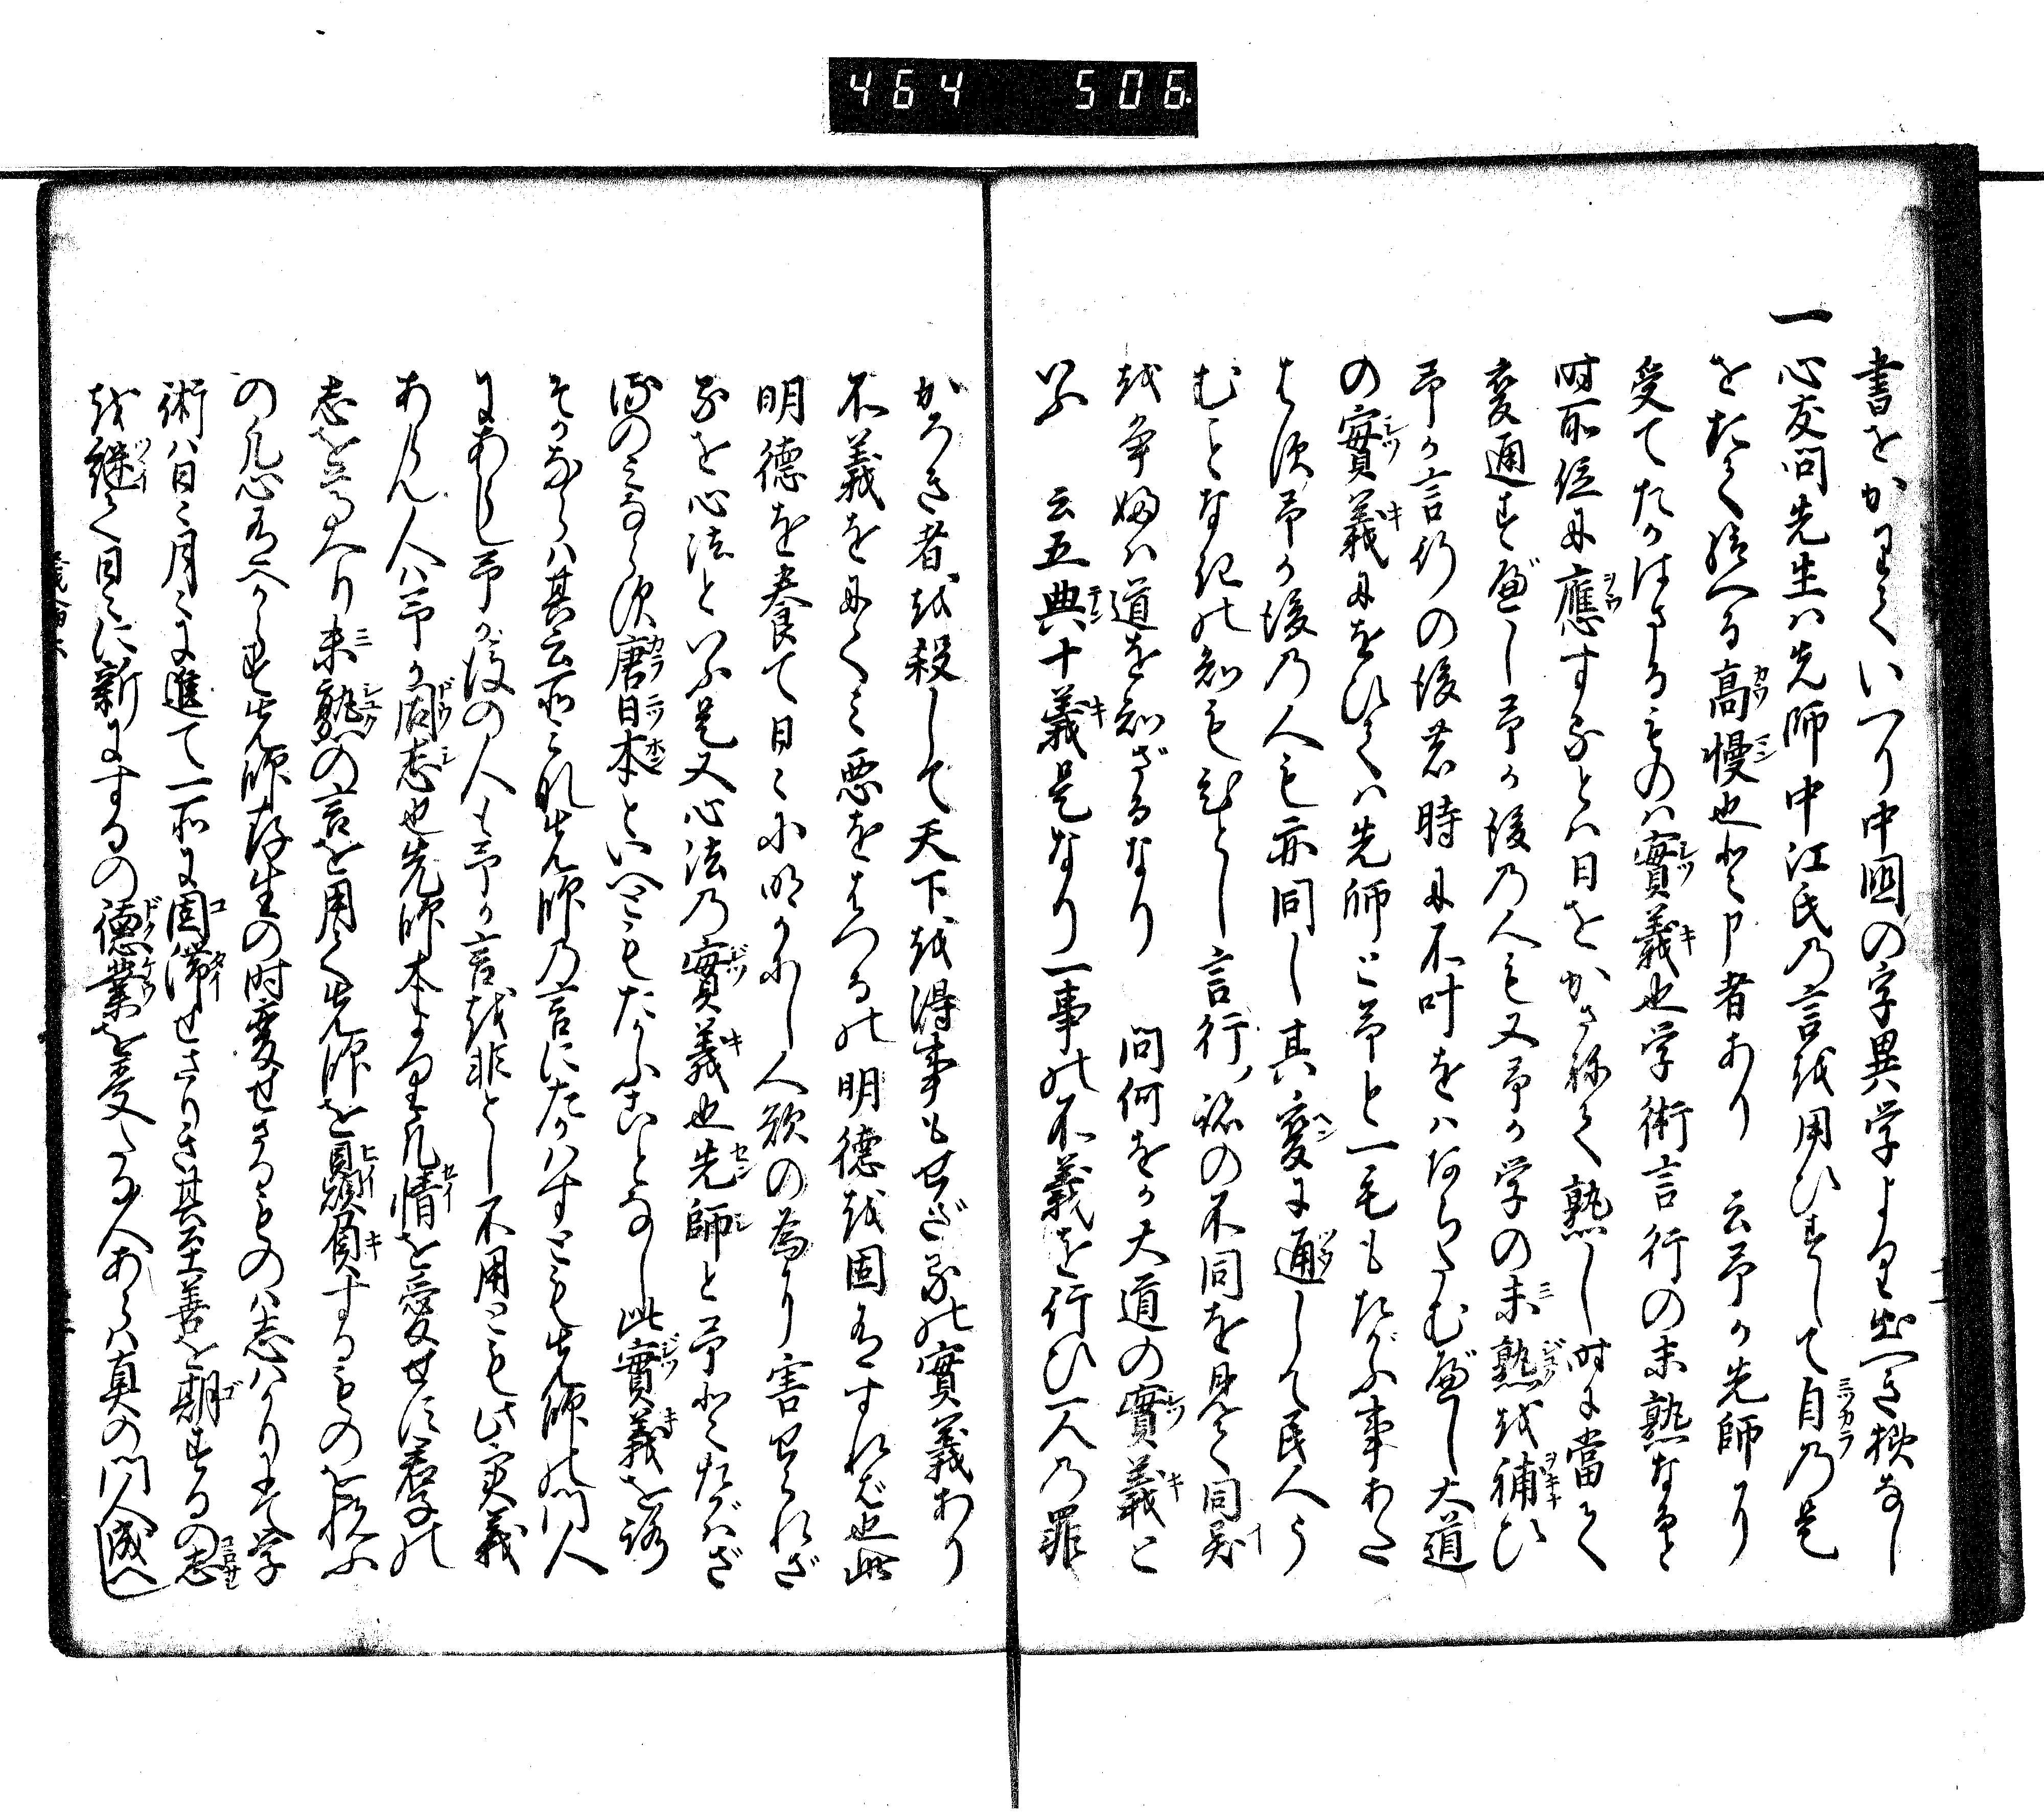 464 506
書をかりていへり中国の字異学より出へき様なし
一心友問先生ハ先師中江氏の言を用ひすして自の是
をたて給へる高慢也と申者あり 云予か先師より
受てたかはさるものハ實義也学術言行の未熟なると
時所位に應するとハ日をかさねて熟し時に當て
変通すべし予か後の人も又予か学の未熟を補ひ
予か言行の後の時に不叶をハあらたむべし大道
の實義にをひてハ先師と予と一毛もたがふ事あた
はす予か後の人も亦同し其変に通して民人う
むことなきの知もひとし言行ノ跡の不同を見て同異
を争ふハ道を知ざるなり 問何をか大道の實義と
いふ 云五典十義是なり一事の不義を行ひ一人の罪
かろき者を殺して天下を得事もせざるの實義あり
不義をにくミ悪をはつるの明徳を固有すれバ也此
明徳を養て日々に明かにし人欲の為に害せられざ
るを心法といふ是又心法の實義也先師と予とたがハざ
るのミならす唐日本といへともたかふことなし此實義を
そかならハ其云所これ先師の言にたかハすとも先師の門人
にあらし予か後の人も予か言を非とし不用とも此実義
あらん人ハ予か同志也先師本より凡情を愛せす君子の
志を尊へり未熟の言を用て先師を贔屓するものを悦ふ
の凡心有へからす先師存生の時変せさるものハ志ハかりにて学
術ハ日々月々に進て一所に固滞せさりき其至善を期するの志
を継て日々に新にするの徳業を受たる人あらハ真の門人成へし